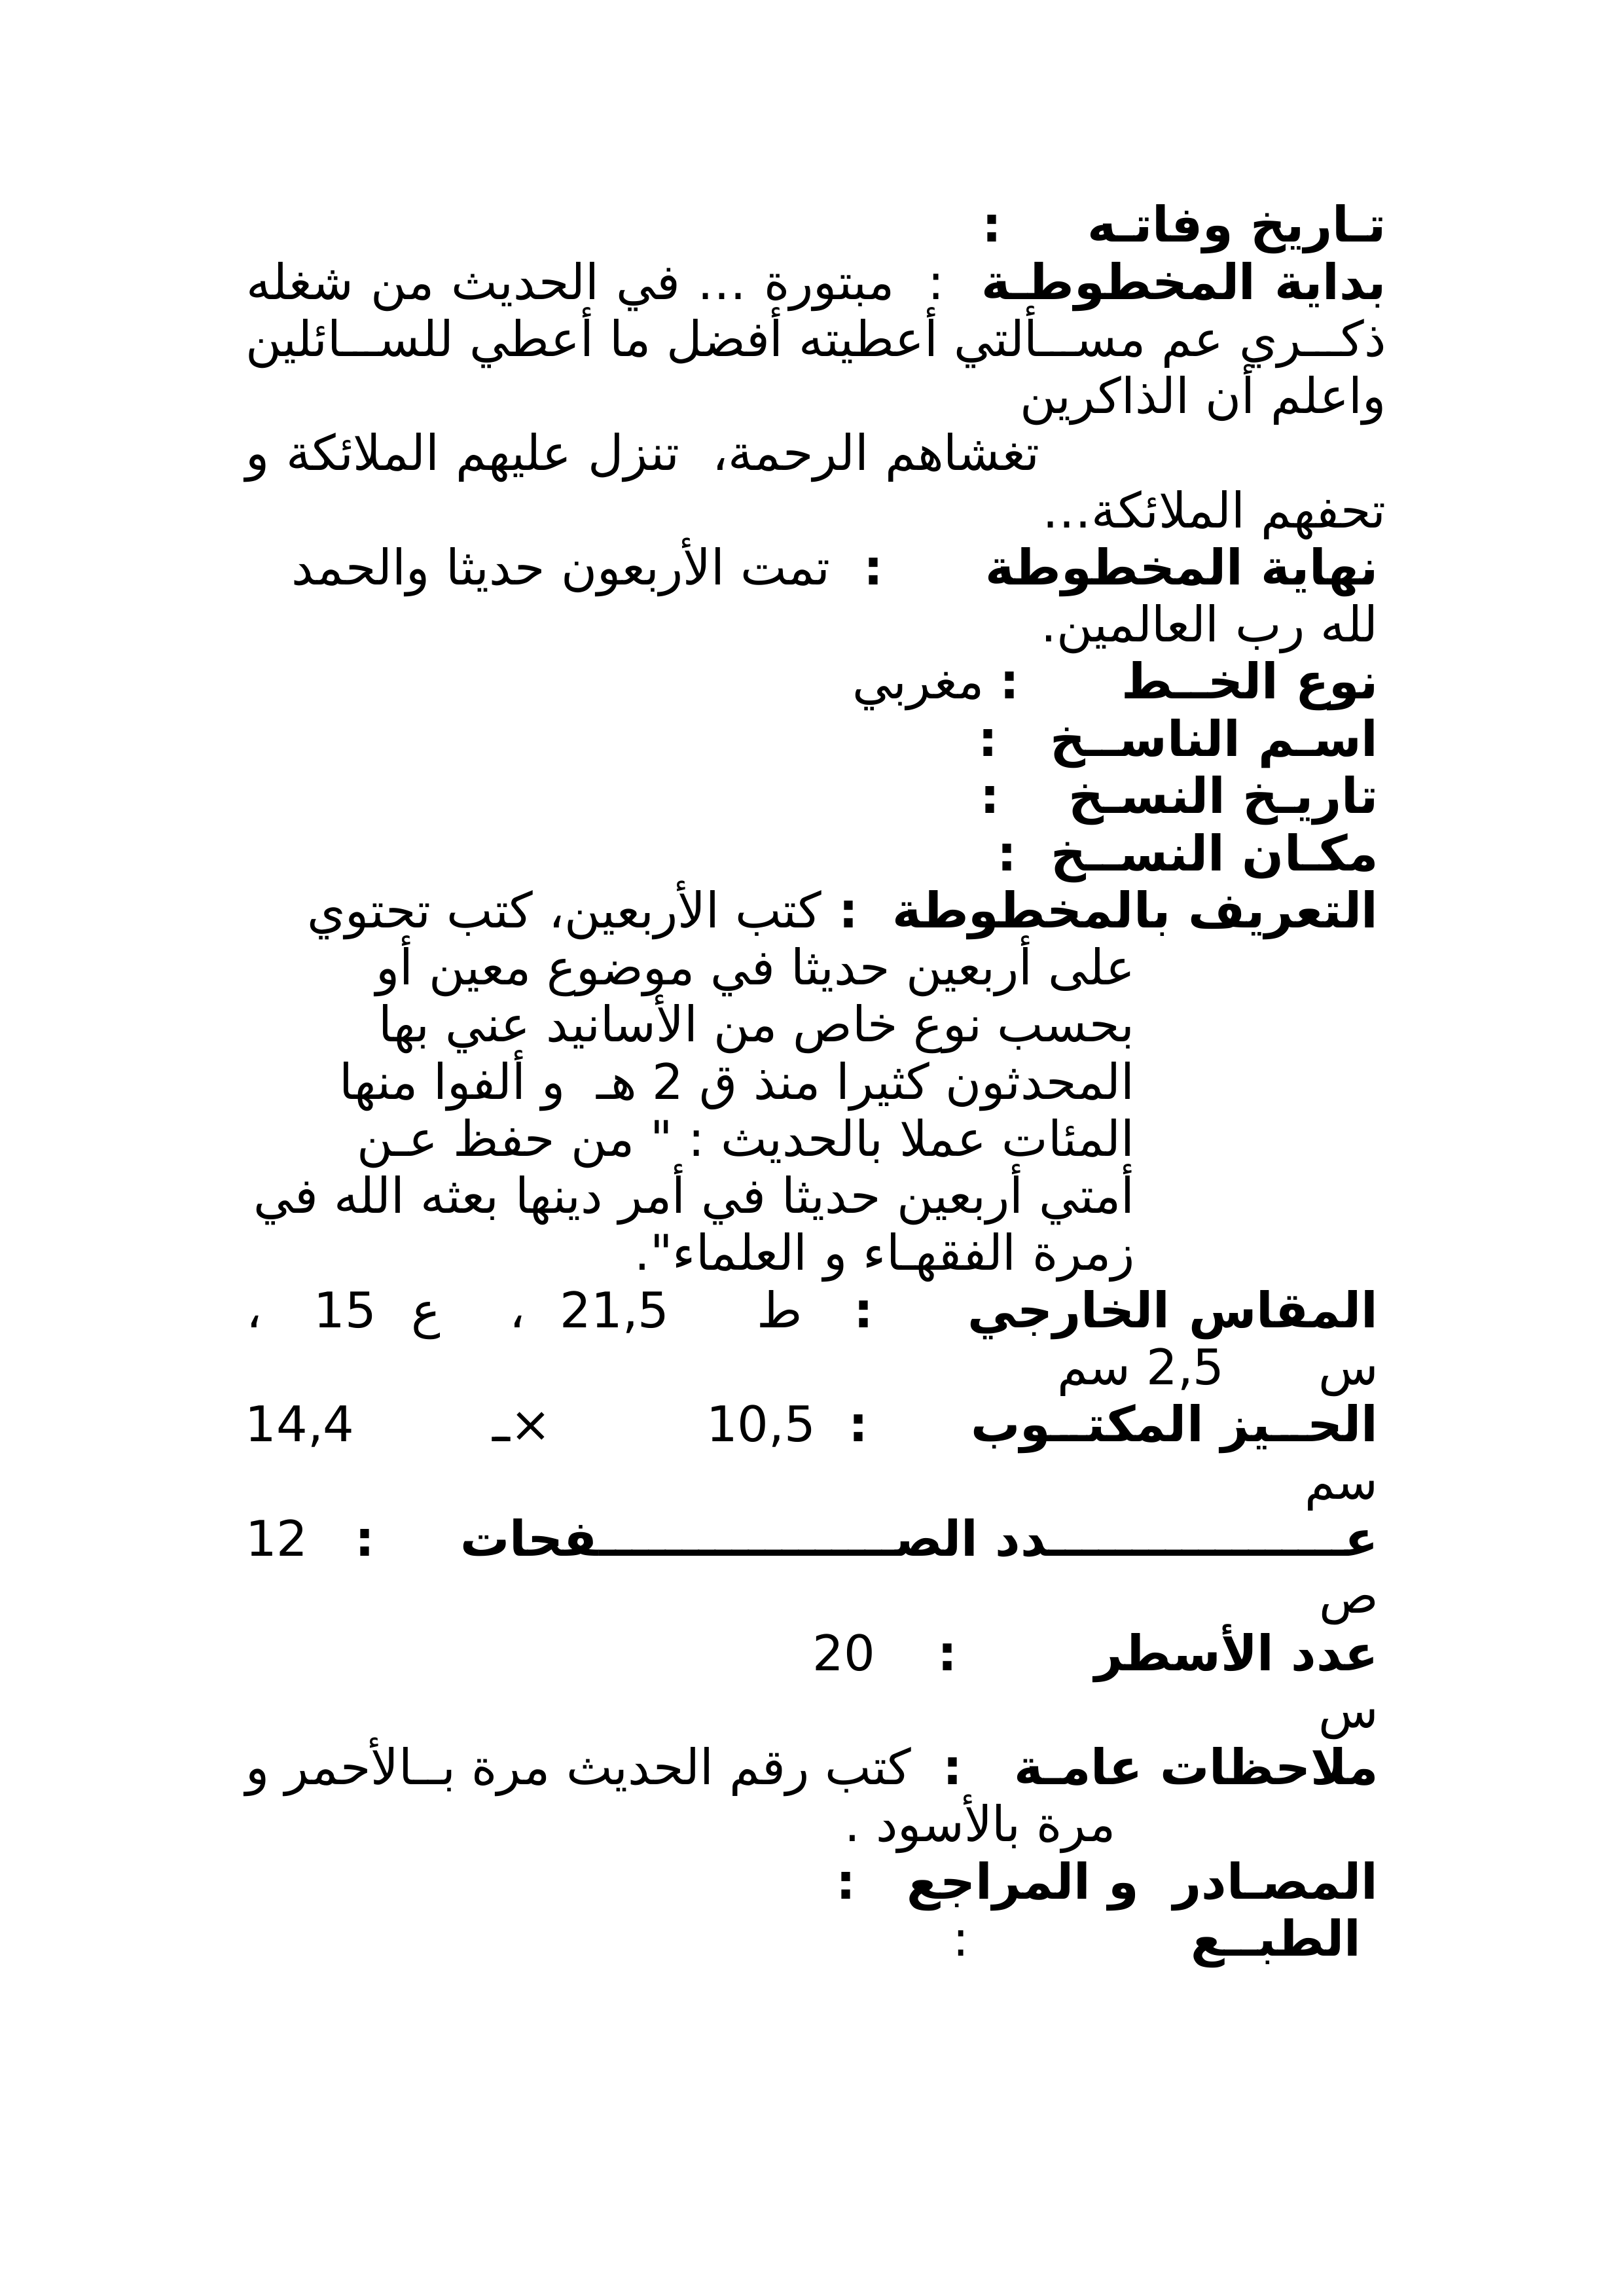 تـاريخ وفاتـه :
بداية المخطوطـة : مبتورة ... في الحديث من شغله
ذكـــري عم مســـألتي أعطيته أفضل ما أعطي للســـائلين
واعلم أن الذاكرين
تغشاهم الرحمة، تنزل عليهم الملائكة و
تحفهم الملائكة...
نهاية المخطوطة : تمت الأربعون حديثا والحمد
لله رب العالمين.
نوع الخــط : مغربي
اسـم الناســخ :
تاريـخ النسـخ :
مكـان النســخ :
التعريف بالمخطوطة : كتب الأربعين، كتب تحتوي
على أربعين حديثا في موضوع معين أو
بحسب نوع خاص من الأسانيد عني بها
المحدثون كثيرا منذ ق 2 هـ و ألفوا منها
المئات عملا بالحديث : " من حفظ عـن
أمتي أربعين حديثا في أمر دينها بعثه الله في
زمرة الفقهـاء و العلماء".
المقاس الخارجي : ط 21,5 ، ع 15 ،
س 2,5 سم
الحــيز المكتــوب : 10,5 ×ـ 14,4
سم
عــــــــــــــــــدد الصــــــــــــــــــفحات : 12
ص
عدد الأسطر : 20
س
ملاحظات عامـة : كتب رقم الحديث مرة بــالأحمر و
مرة بالأسود .
المصـادر و المراجع :
الطبــع :